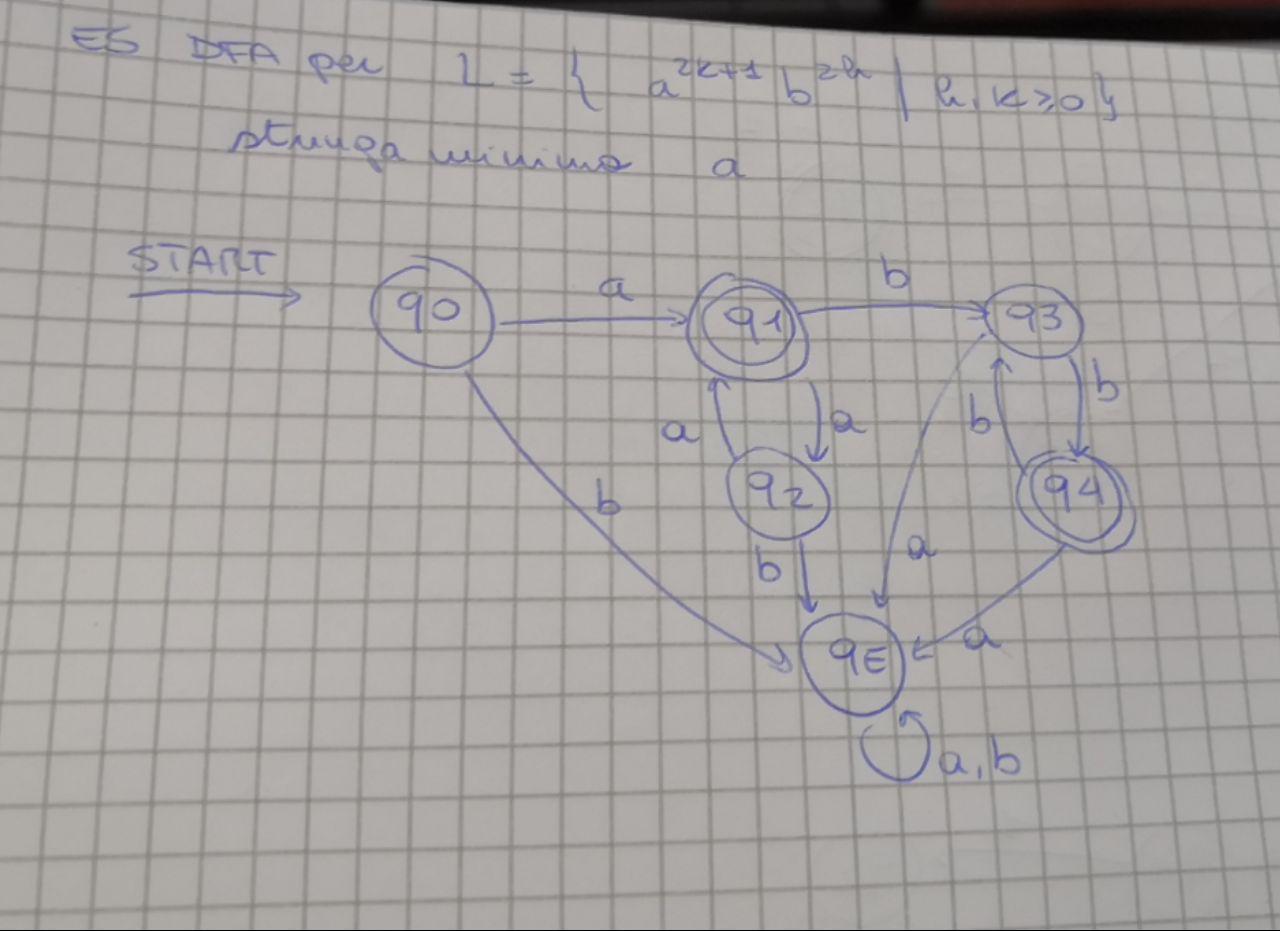 ES DFA per L = { a^{2k+1} b^{2h} | h, k ≥ 0 }
stringa minima a
START
q0 a q1 b q3
a a b b
q2 q4
b
b a
qE a
a,b